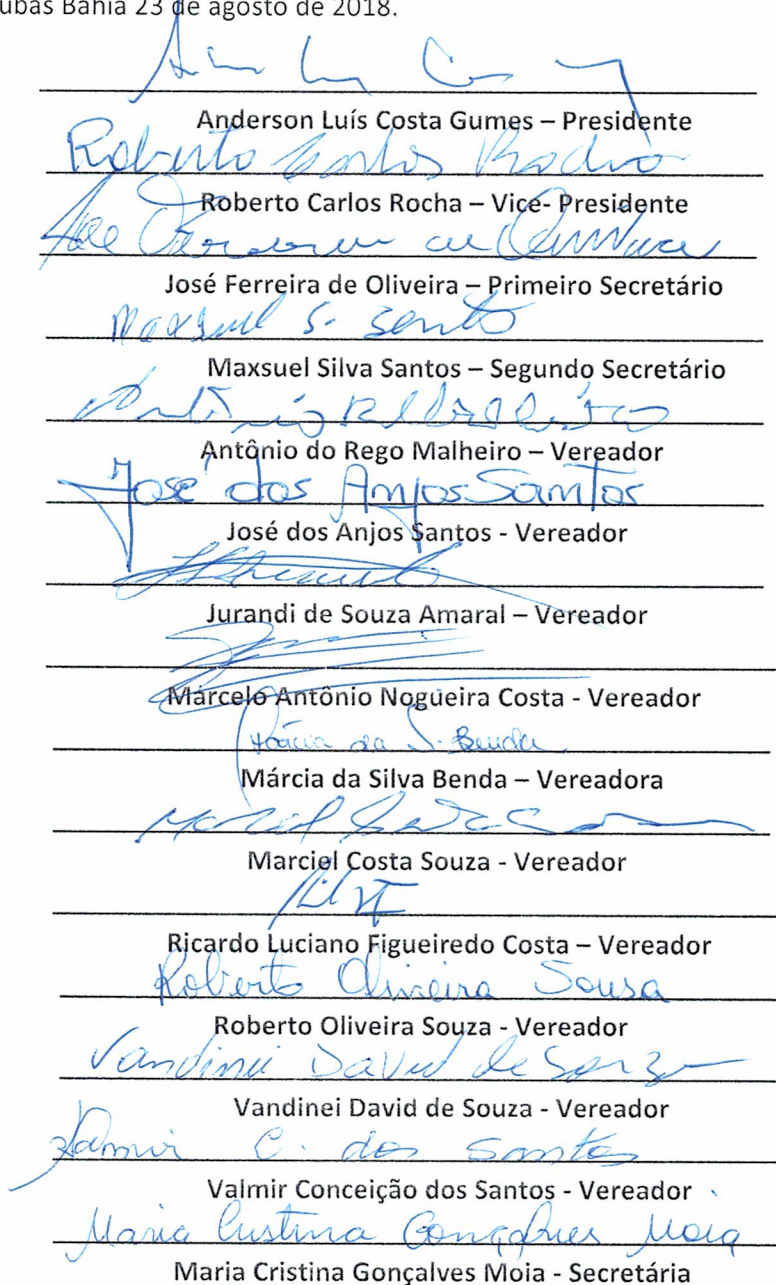 ubas Bahia 23 de agosto de 2018.
Anderson Luís Costa Gumes – Presidente
Roberto Carlos Rocha
Roberto Carlos Rocha – Vice- Presidente
José Ferreira de Oliveira
José Ferreira de Oliveira – Primeiro Secretário
Maxsuel S. Santo
Maxsuel Silva Santos – Segundo Secretário
Antônio
Antônio do Rego Malheiro – Vereador
José dos Anjos Santos
José dos Anjos Santos - Vereador
Jurandi de Souza Amaral – Vereador
Márcelo Antônio Nogueira Costa - Vereador
Márcia da S. Benda
Márcia da Silva Benda – Vereadora
Marciel
Marciel Costa Souza - Vereador
Ricardo Luciano Figueiredo Costa – Vereador
Roberto Oliveira Sousa
Roberto Oliveira Souza - Vereador
Vandinei David de Souza
Vandinei David de Souza - Vereador
C. dos Santos
Valmir Conceição dos Santos - Vereador
Maria Cristina Gonçalves Moia
Maria Cristina Gonçalves Moia - Secretária